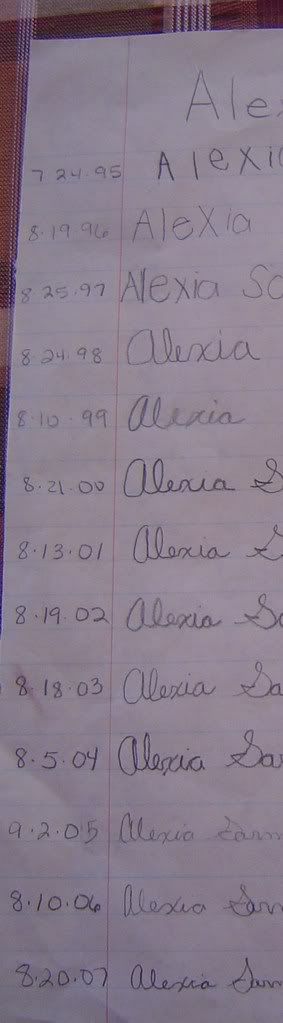 Ale
7·24·95 Alexia
8·19·96 Alexia
8·25·97 Alexia Sa
8·24·98 Alexia
8·10·99 Alexia
8·21·00 Alexia S
8·13·01 Alexia S
8·19·02 Alexia Sa
8·18·03 Alexia Sa
8·5·04 Alexia Sar
9·2·05 Alexia Sarm
8·10·06 Alexia Sarm
8·20·07 Alexia Sarm